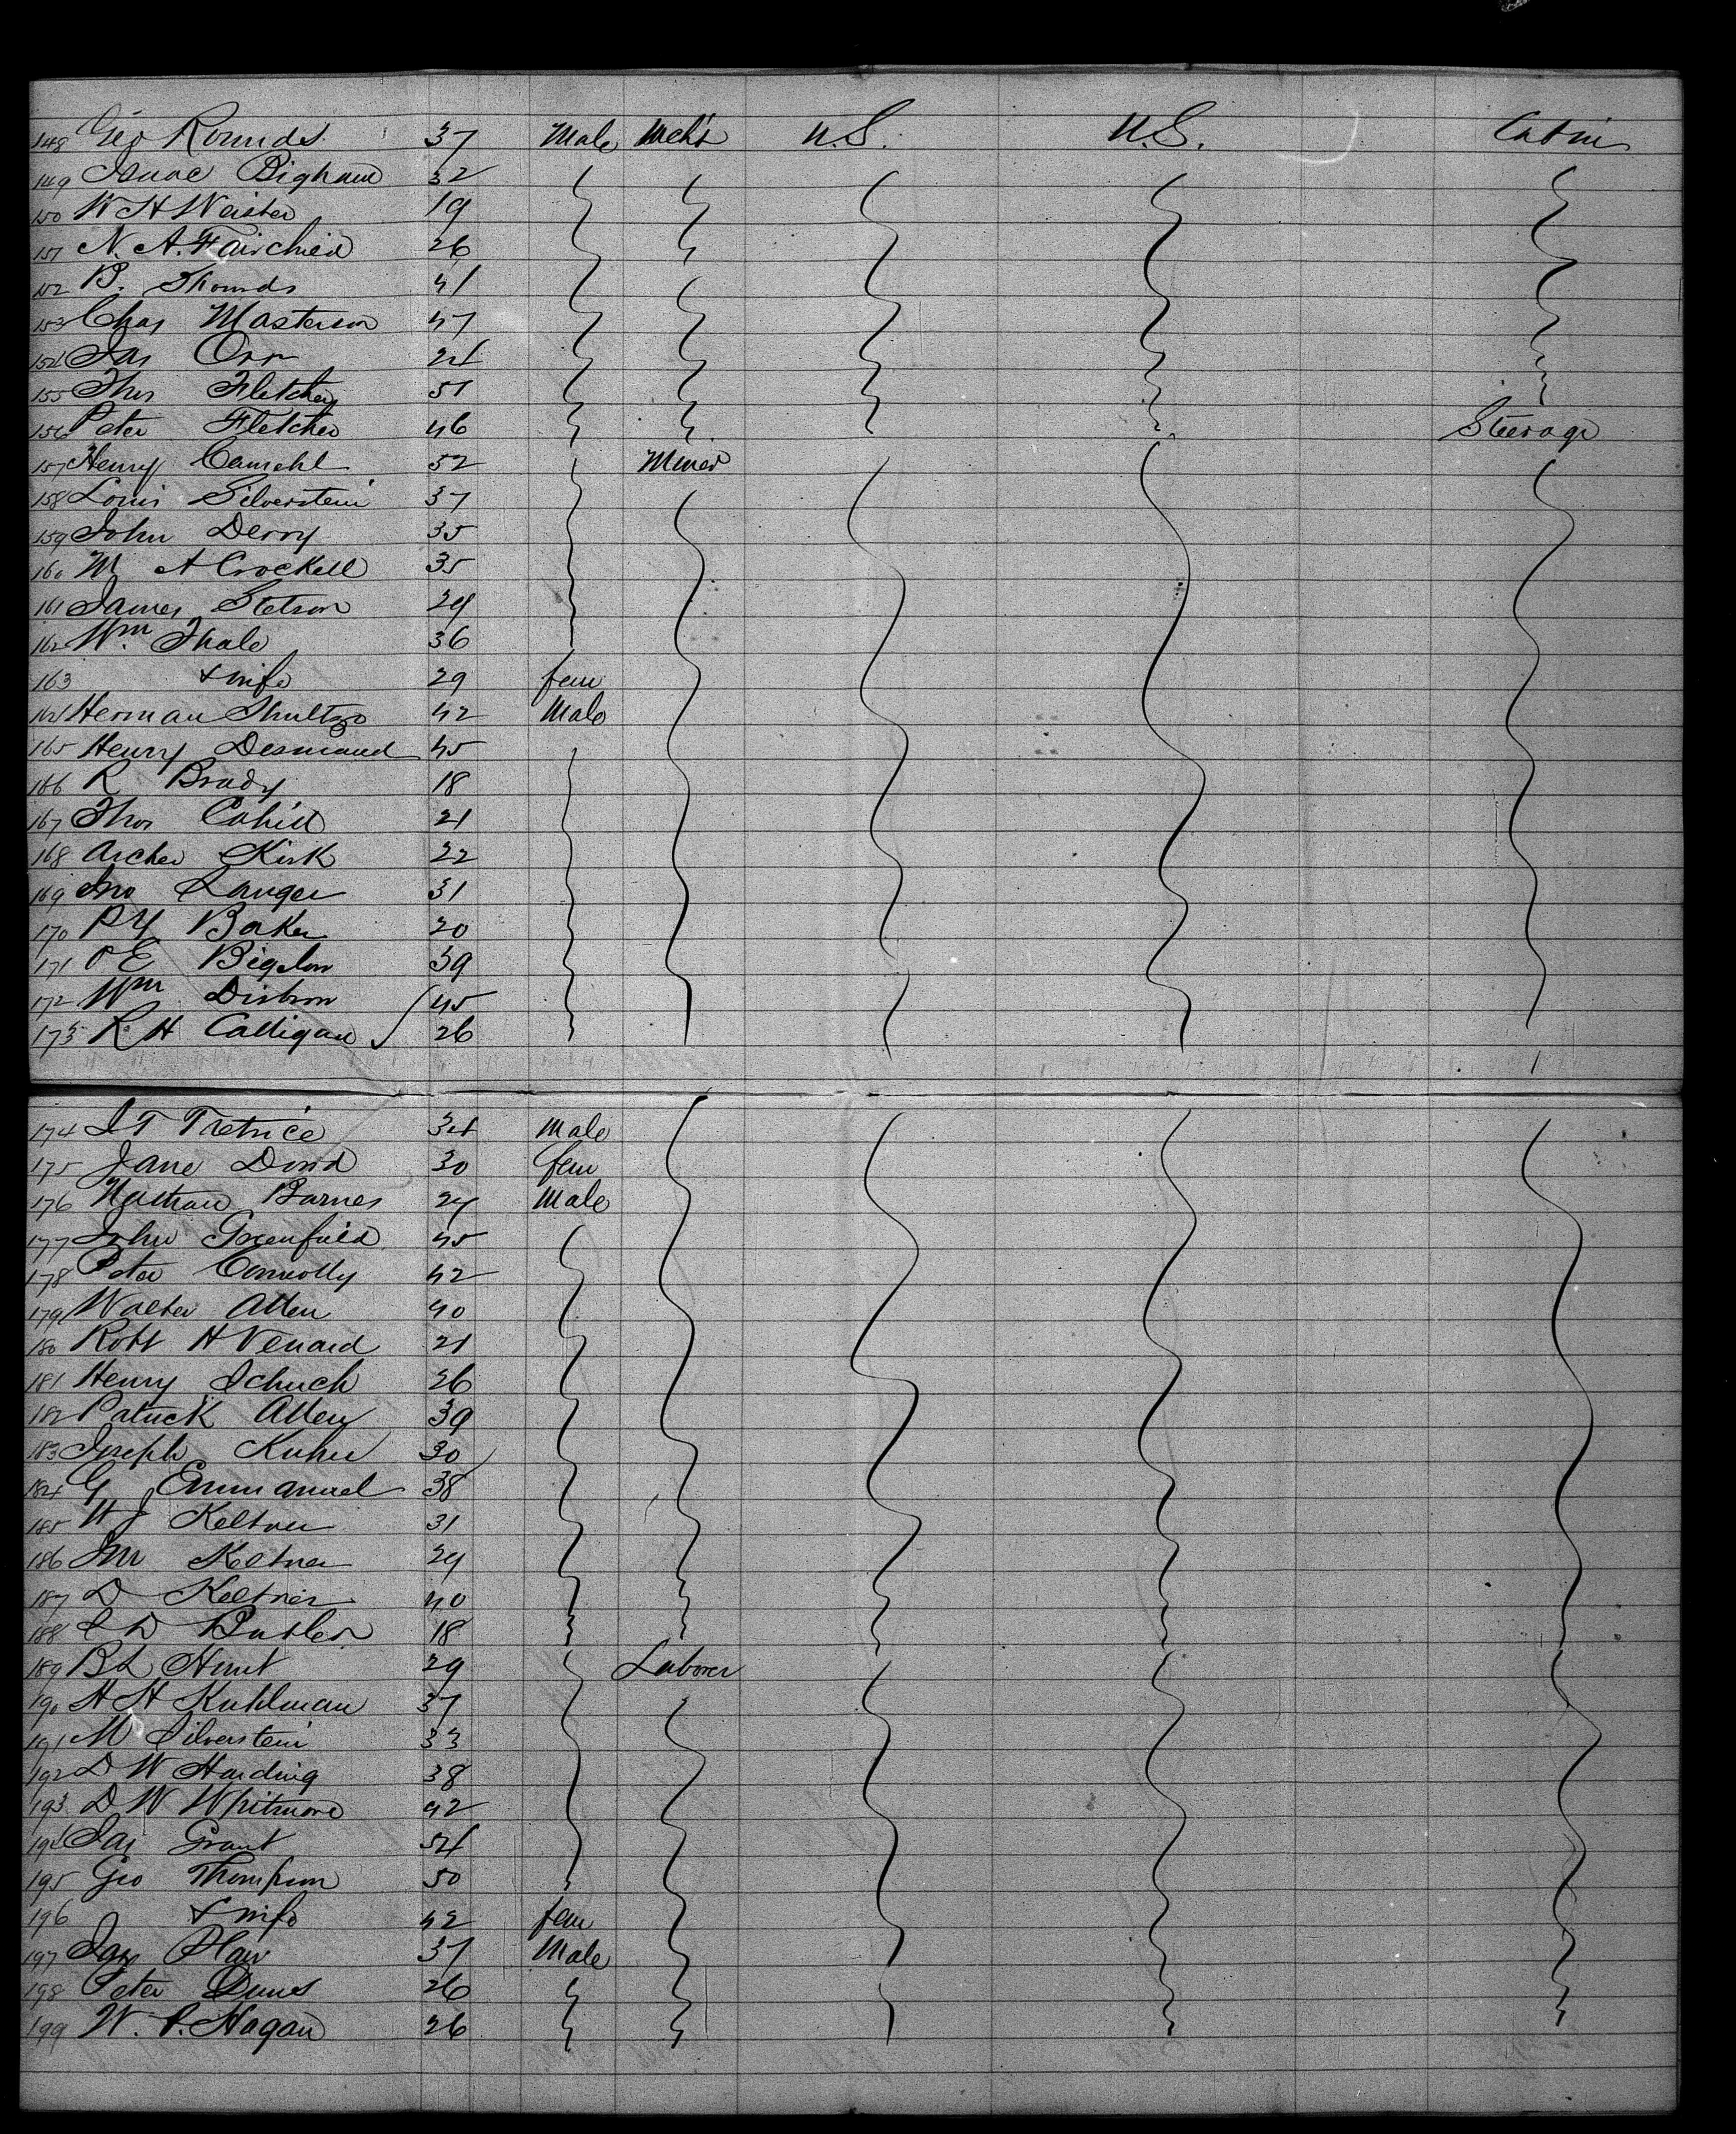 148 Geo Rounds 37 Male Mch't U.S. U.S. Cabin
149 Isaac Bigham 32
150 W H Weister 19
151 N. A. Fairchild 26
152 B. Thounds 41
153 Chas Masterson 47
154 Jas Orr 24
155 Thos Fletcher 51
156 Peter Fletcher 46 Steerage
157 Henry Camehl 52 Miner
158 Louis Silverstein 37
159 John Derry 35
160 M A Crockell 35
161 James Stetson 24
162 Wm Thale 36
163 & wife 29 fem
164 Herman Shultze 42 Male
165 Henry Desmond 45
166 R Brady 18
167 Thos Cahill 21
168 Archer Kirk 22
169 Jno Langer 31
170 P Y Baker 20
171 O E Bigelow 39
172 Wm Disbron 45
173 R H Calligan 26
174 J T Tretrice 34 Male
175 Jane Dowd 30 fem
176 Nathan Barnes 24 Male
177 John Greenfield 45
178 Peter Connolly 42
179 Walter Allen 40
180 Robt H Venard 21
181 Henry Schuch 26
182 Patrick Allen 39
183 Joseph Kuhn 30
184 G Emmanuel 38
185 W J Keltner 31
186 Jno Keltner 24
187 D Keltner 40
188 J D Butler 18
189 B L Hunt 29 Laborer
190 H H Kuhlman 37
191 M Silverstein 33
192 D W Harding 38
193 D W Whitmore 42
194 Jas Grant 54
195 Geo Thompson 50
196 & wife 42 fem
197 Jas Blair 37 Male
198 Peter Dunes 26
199 W. P. Hagan 26